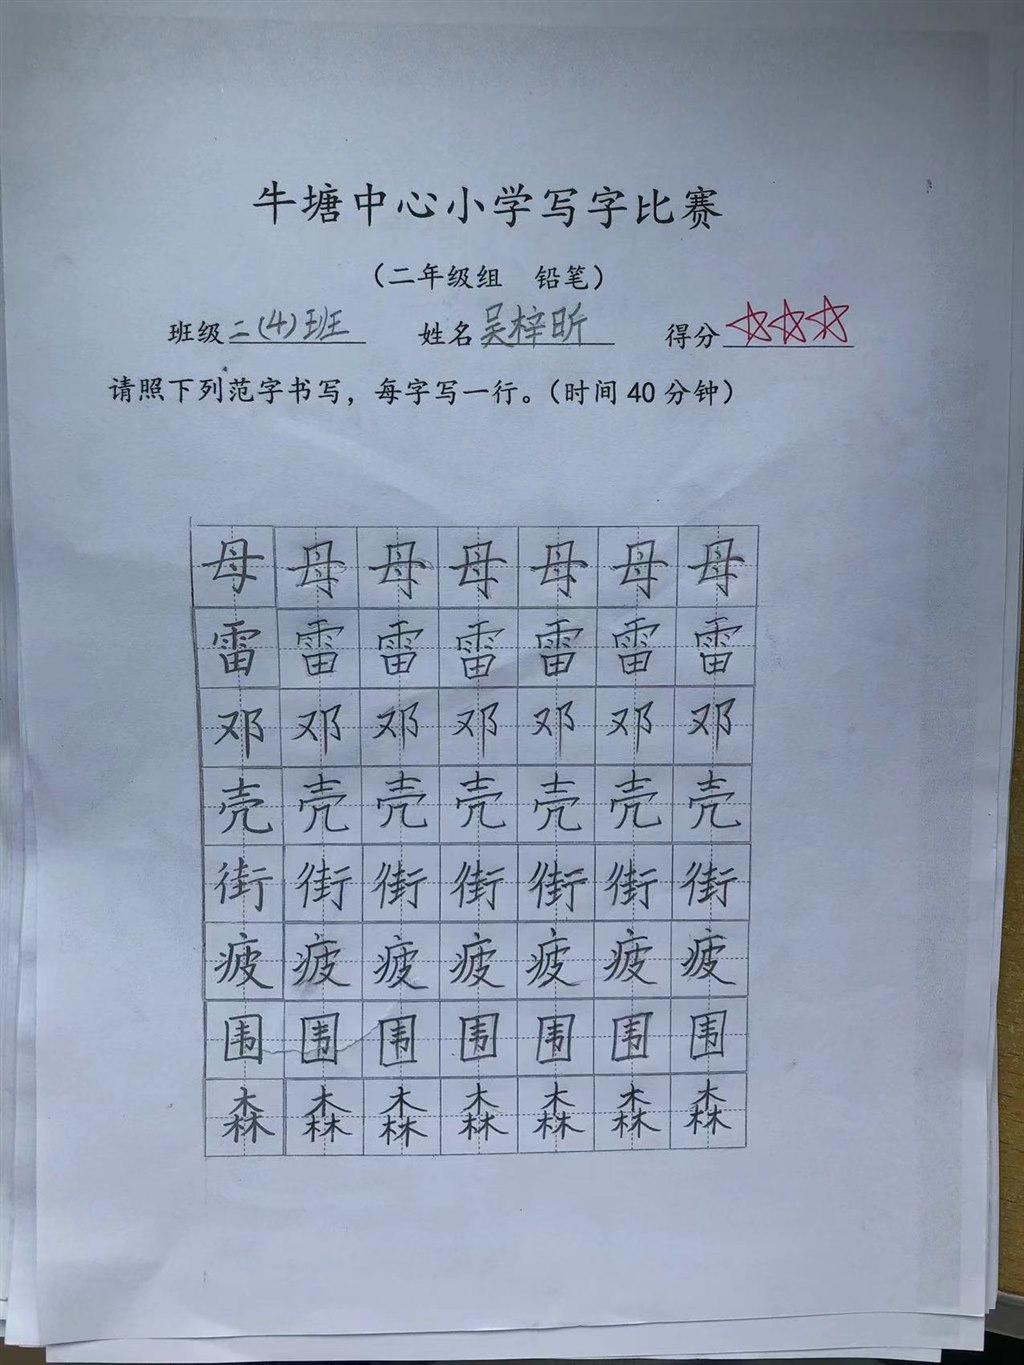 牛塘中心小学写字比赛
（二年级组 铅笔）
班级二(4)班 姓名吴梓昕 得分☆☆☆
请照下列范字书写，每字写一行。（时间 40 分钟）
母母母母母母母
雷雷雷雷雷雷雷
邓邓邓邓邓邓邓
壳壳壳壳壳壳壳
街街街街街街街
疲疲疲疲疲疲疲
围围围围围围围
森森森森森森森